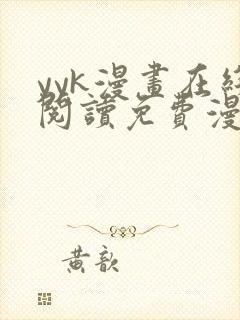 yyk漫畫在線
閱讀免費漫
黃歆